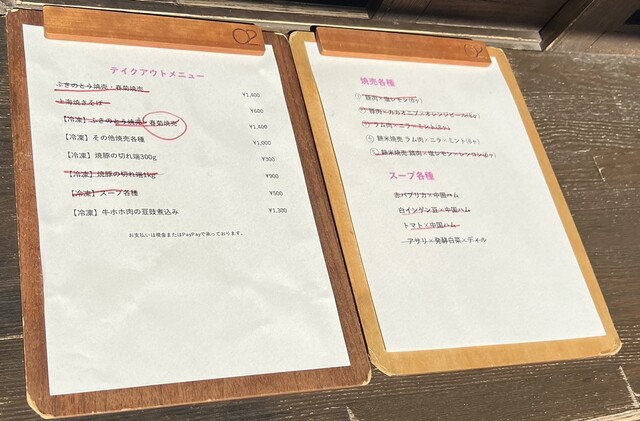 テイクアウトメニュー
ふきのとう焼売・春菊焼売 ¥1,400
上海焼きそば ¥600
【冷凍】ふきのとう焼売・春菊焼売 ¥1,400
【冷凍】その他焼売各種 ¥1,000
【冷凍】焼豚の切れ端300g ¥300
【冷凍】焼豚の切れ端1kg ¥900
【冷凍】スープ各種 ¥500
【冷凍】牛ホホ肉の豆豉煮込み ¥1,300
お支払いは現金またはPayPayで承っております。
焼売各種
① 豚肉×塩レモン(6ヶ)
② 豚肉×カカオニブ×オレンジピール(6ヶ)
③ ラム肉×ニラ×ミント(6ヶ)
④ 餅米焼売 ラム肉×ニラ×ミント(6ヶ)
⑤ 餅米焼売 鶏肉×塩レモン
スープ各種
赤パプリカ×中国ハム
白インゲン豆×中国ハム
トマト×中国ハム
アサリ×発酵白菜×ディル